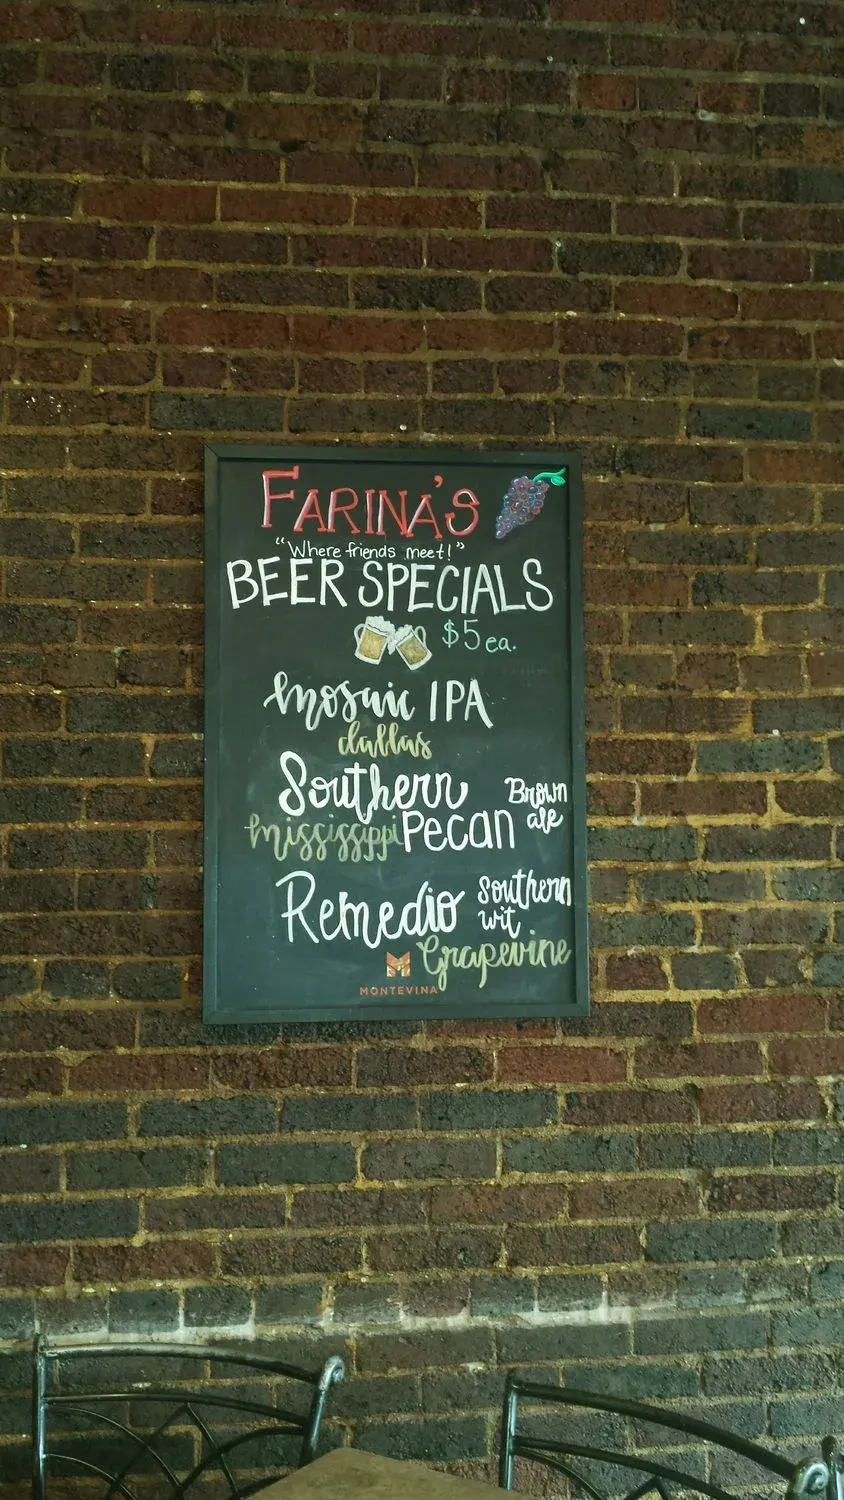 FARINA'S
"Where friends meet!"
BEER SPECIALS
$5 ea.
Mosaic IPA
dallas
Southern
Pecan
Brown
ale
Mississippi
Remedio
Southern
wit
Grapevine
M
MONTEVINA